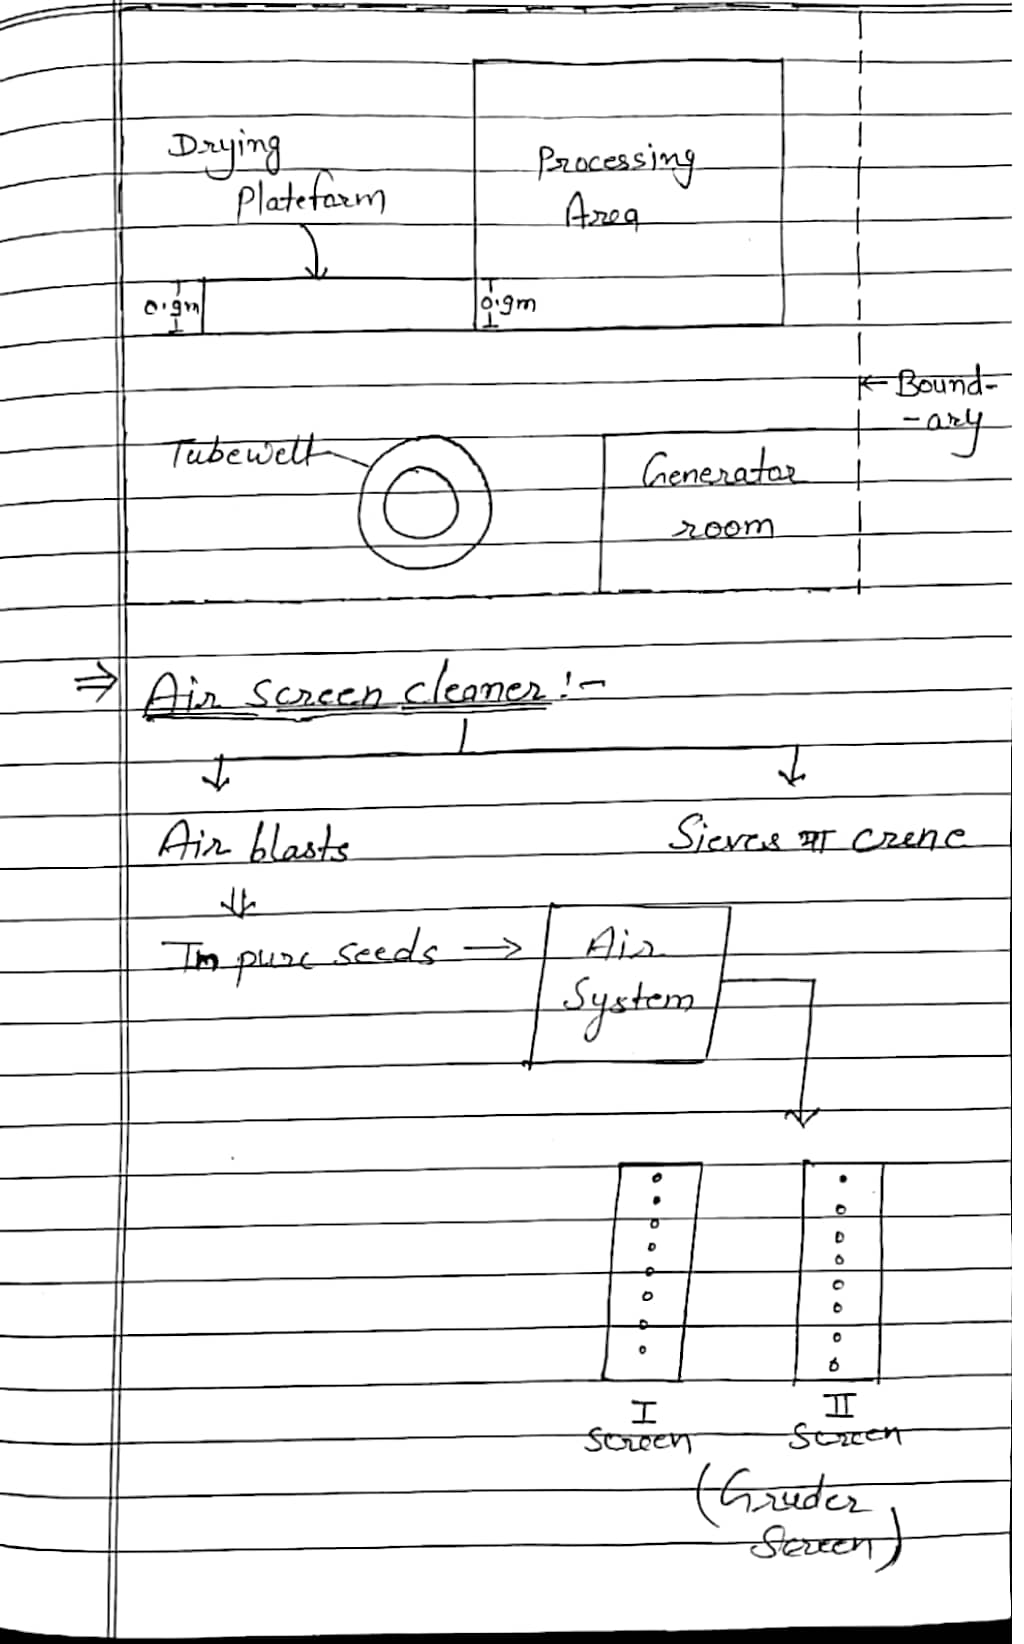 Drying
Plateform
Processing
Area
0.9m
0.9m
← Bound-
-ary
Tubewell
Generator
room
⇒ Air screen cleaner :-
Air blasts
Sieves या crene
Im pure seeds →
Air
System
I
screen
II
Screen
(Gruder
Screen)